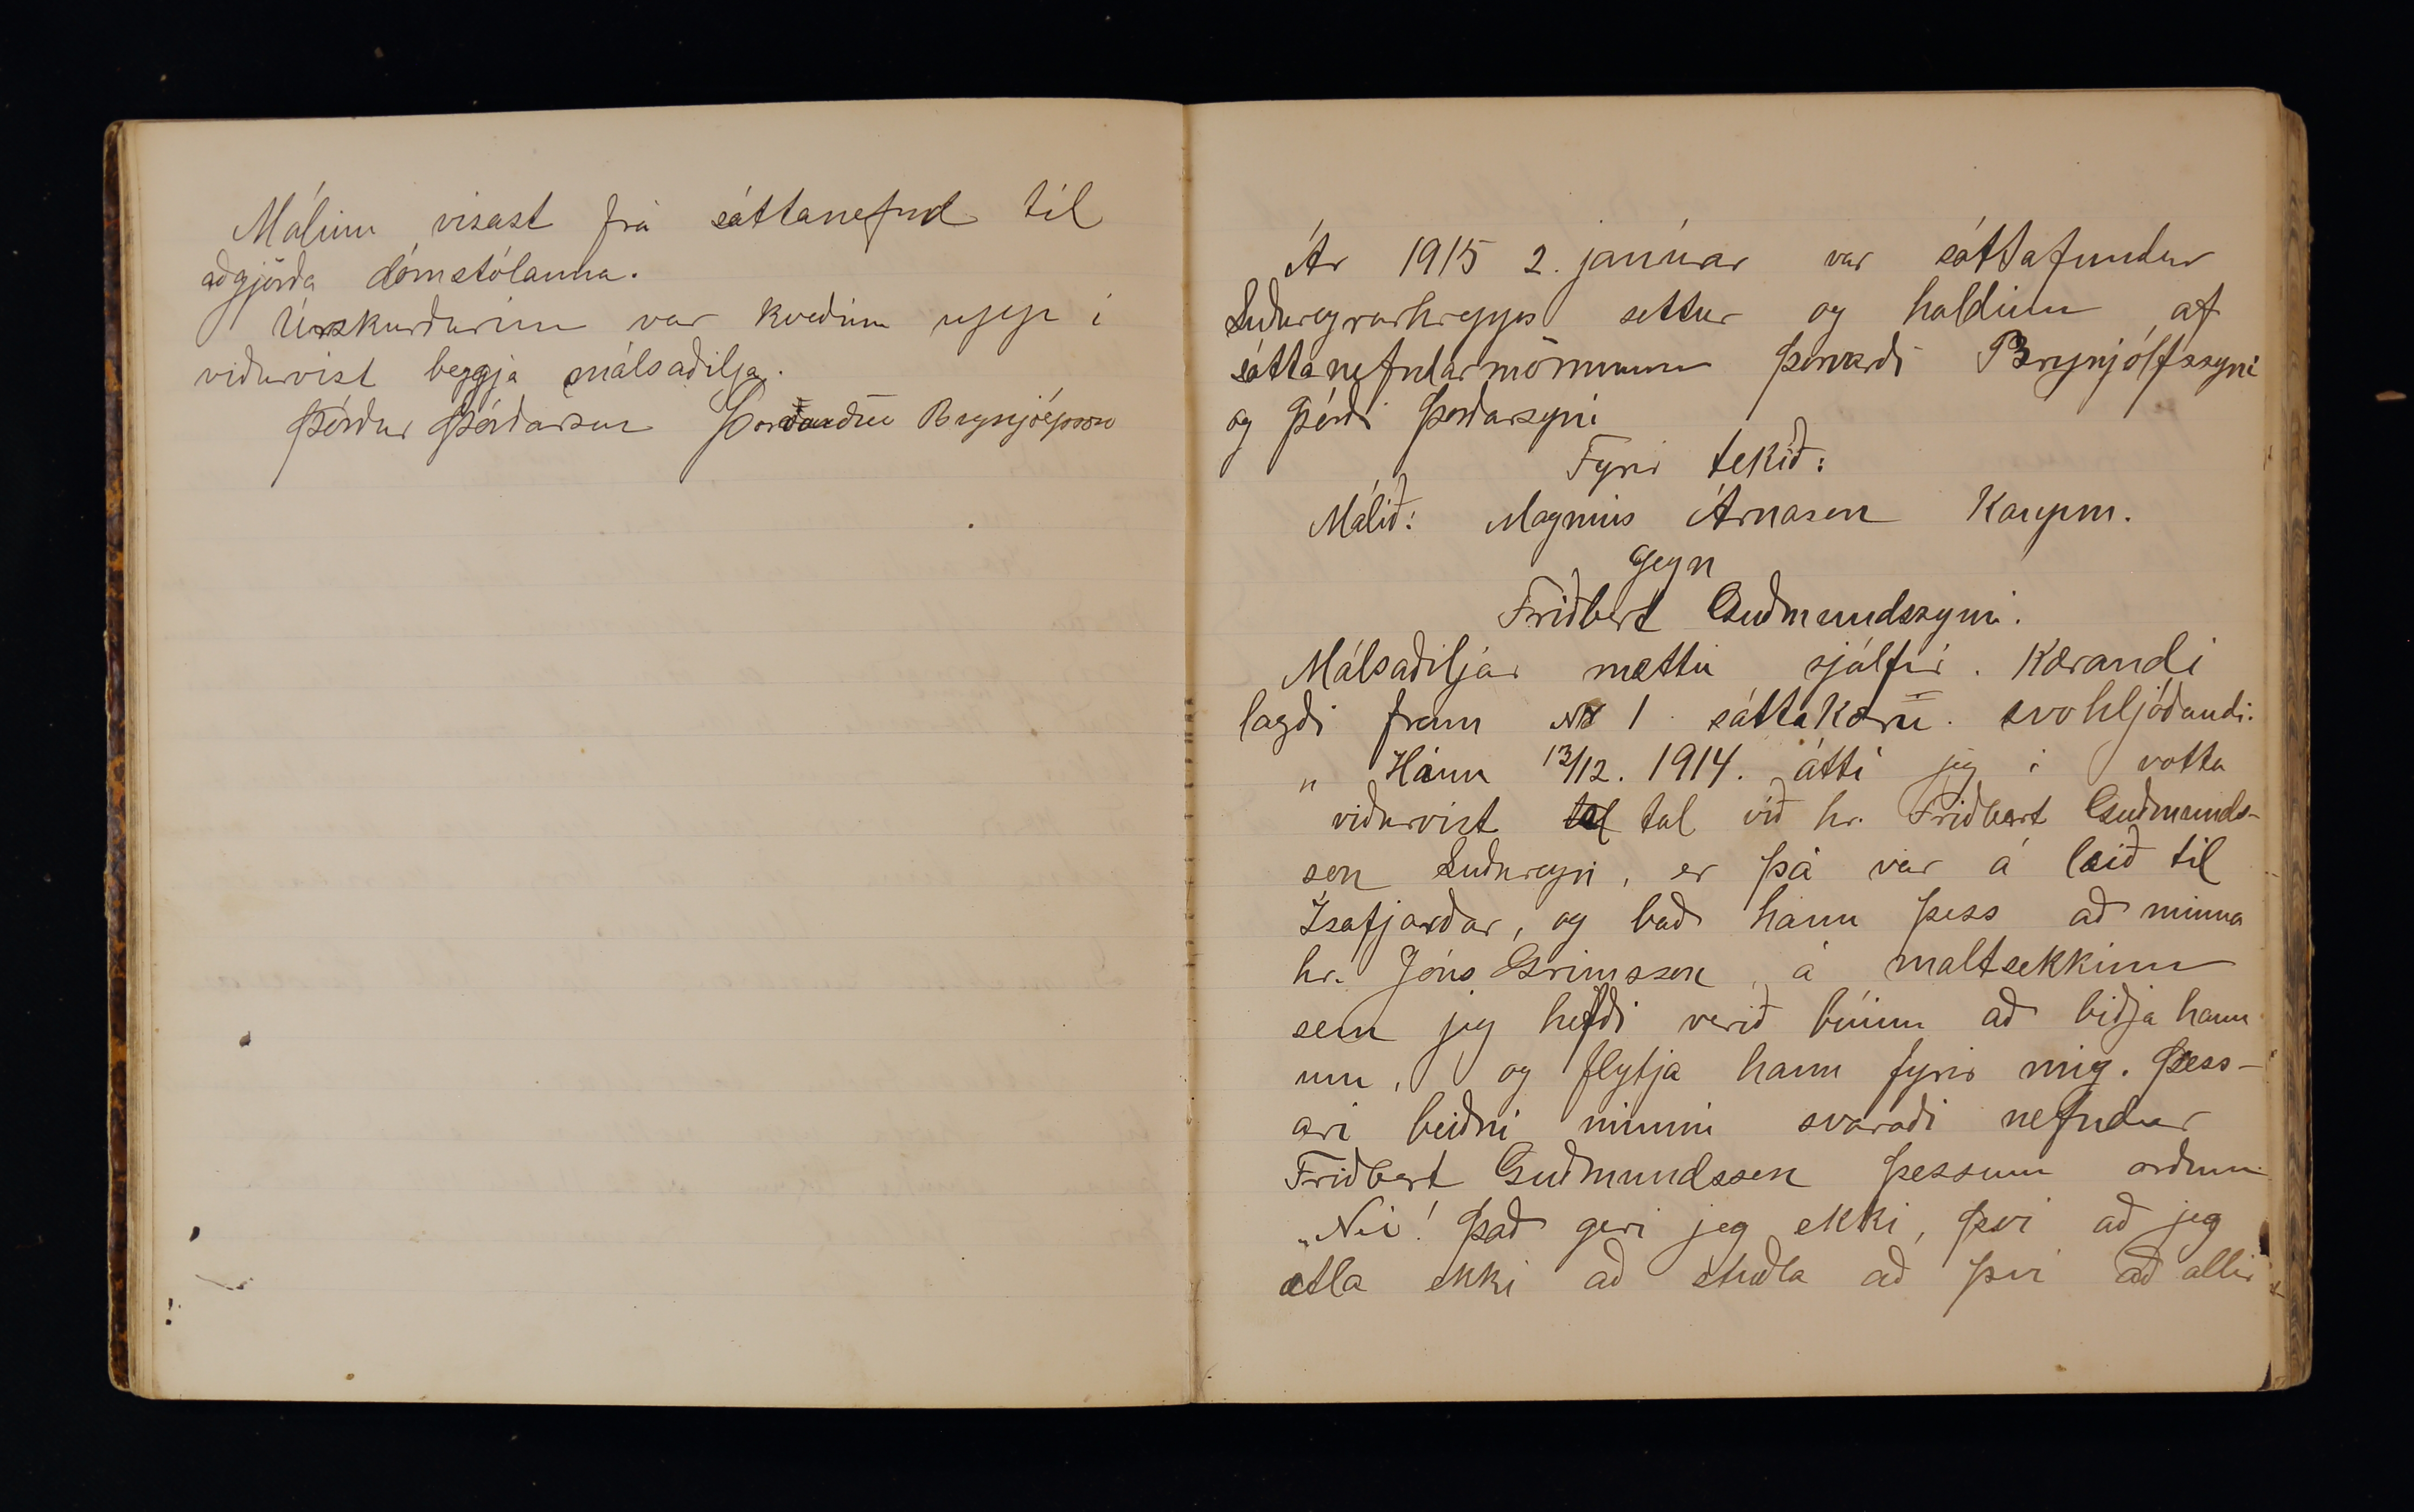 Málinu vísast frá sáttanefnd til
aðgjörða dómstólanna.
Úrskurðurinn var kveðinn upp í
viðurvist beggja málsaðilja.
Þórður Þórðarson Þorvarður Brynjólfsson
Ár 1915 2. janúar var sáttafundur
Suðureyrarhrepps settur og haldinn af
sáttanefndarmönnunum Þorvarði Brynjólfssyni
og Þórði Þorðarsyni
Fyrir tekið:
Málið: Magnús Árnason Kaupm.
gegn
Friðbert Guðmundssyni.
Málsaðiljar mættu sjálfir. Kærandi
lagði fram No 1 sáttakæru svohljóðandi.
„ Hinn 13/12. 1914. átti jeg í votta
viðurvist tal við hr. Friðbert Guðmunds-
son Suðureyri, er þá var á leið til
Ísafjarðar, og bað hann þess að minna
hr. Jóns Grímsson á maltsekkinn
sem jeg hefði verið búinn að biðja hann
um, og flytja hann fyrir mig. Þess-
ari beiðni minni svaraði nefndur
Friðbert Guðmundsson þessum orðum
„Nei! Það geri jeg ekki, því að jeg
ætla ekki að stuðla að því að allir